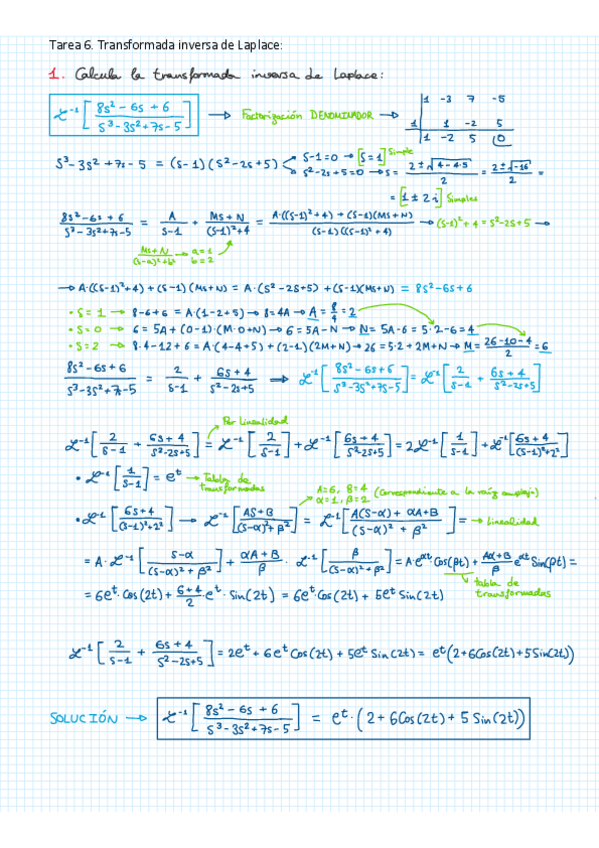 Tarea 6. Transformada inversa de Laplace:
1. Calcula la transformada inversa de Laplace:
ℒ⁻¹[(8s² - 6s + 6)/(s³ - 3s² + 7s - 5)] → Factorización DENOMINADOR → 1 -3 7 -5
1 1 -2 5
1 -2 5 0
s³ - 3s² + 7s - 5 = (s-1)(s² - 2s + 5) s-1 = 0 → [s = 1] Simple
s² - 2s + 5 = 0 → s = (2 ± √(4 - 4·5))/2 = (2 ± √-16)/2 =
= [1 ± 2i] Simples
(8s² - 6s + 6)/(s³ - 3s² + 7s - 5) = A/(s-1) + (Ms + N)/((s-1)² + 4) = (A·((s-1)² + 4) + (s-1)(Ms + N))/((s-1)((s-1)² + 4)) → (s-1)² + 4 = s² - 2s + 5 →
(Ms + N)/((s-a)² + b²) → a = 1
b = 2
→ A·((s-1)² + 4) + (s-1)(Ms + N) = A·(s² - 2s + 5) + (s-1)(Ms + N) = 8s² - 6s + 6
• s = 1 → 8 - 6 + 6 = A·(1 - 2 + 5) → 8 = 4A → A = 8/4 = 2
• s = 0 → 6 = 5A + (0-1)·(M·0 + N) → 6 = 5A - N → N = 5A - 6 = 5·2 - 6 = 4
• s = 2 → 8·4 - 12 + 6 = A·(4 - 4 + 5) + (2-1)(2M + N) → 26 = 5·2 + 2M + N → M = (26 - 10 - 4)/2 = 6
(8s² - 6s + 6)/(s³ - 3s² + 7s - 5) = 2/(s-1) + (6s + 4)/(s² - 2s + 5) ⟹ ℒ⁻¹[(8s² - 6s + 6)/(s³ - 3s² + 7s - 5)] = ℒ⁻¹[2/(s-1) + (6s + 4)/(s² - 2s + 5)]
Por linealidad
ℒ⁻¹[2/(s-1) + (6s + 4)/(s² - 2s + 5)] = ℒ⁻¹[2/(s-1)] + ℒ⁻¹[(6s + 4)/(s² - 2s + 5)] = 2ℒ⁻¹[1/(s-1)] + ℒ⁻¹[(6s + 4)/((s-1)² + 2²)]
• ℒ⁻¹[1/(s-1)] = eᵗ → Tabla de
transformadas
A = 6, B = 4
α = 1, β = 2 (Correspondiente a la raíz compleja)
• ℒ⁻¹[(6s + 4)/((s-1)² + 2²)] → ℒ⁻¹[(As + B)/((s-α)² + β²)] = ℒ⁻¹[(A(s-α) + αA + B)/((s-α)² + β²)] = → linealidad
= A·ℒ⁻¹[(s-α)/((s-α)² + β²)] + (αA + B)/β · ℒ⁻¹[β/((s-α)² + β²)] = A·e^αt·Cos(βt) + (Aα + B)/β e^αt Sin(βt) =
tabla de
transformadas
= 6eᵗ·Cos(2t) + (6 + 4)/2 · eᵗ · Sin(2t) = 6eᵗ·Cos(2t) + 5eᵗ Sin(2t)
ℒ⁻¹[2/(s-1) + (6s + 4)/(s² - 2s + 5)] = 2eᵗ + 6eᵗ Cos(2t) + 5eᵗ Sin(2t) = eᵗ(2 + 6Cos(2t) + 5Sin(2t))
SOLUCIÓN → ℒ⁻¹[(8s² - 6s + 6)/(s³ - 3s² + 7s - 5)] = eᵗ·(2 + 6Cos(2t) + 5 Sin(2t))